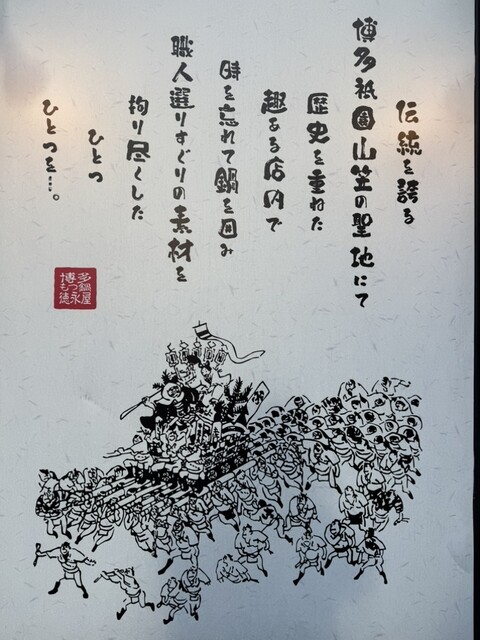 伝統を誇る
博多祇園山笠の聖地にて
歴史を重ねた
趣ある店内で
時を忘れて鍋を囲み
職人選りすぐりの素材を
拘り尽くした
ひとつ
ひとつを…。
博多もつ鍋屋永徳